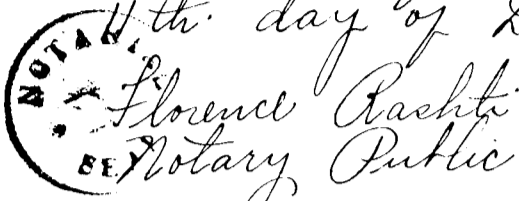 11th. day of D
Florence Rashti
Notary Public
NOTARI
SE